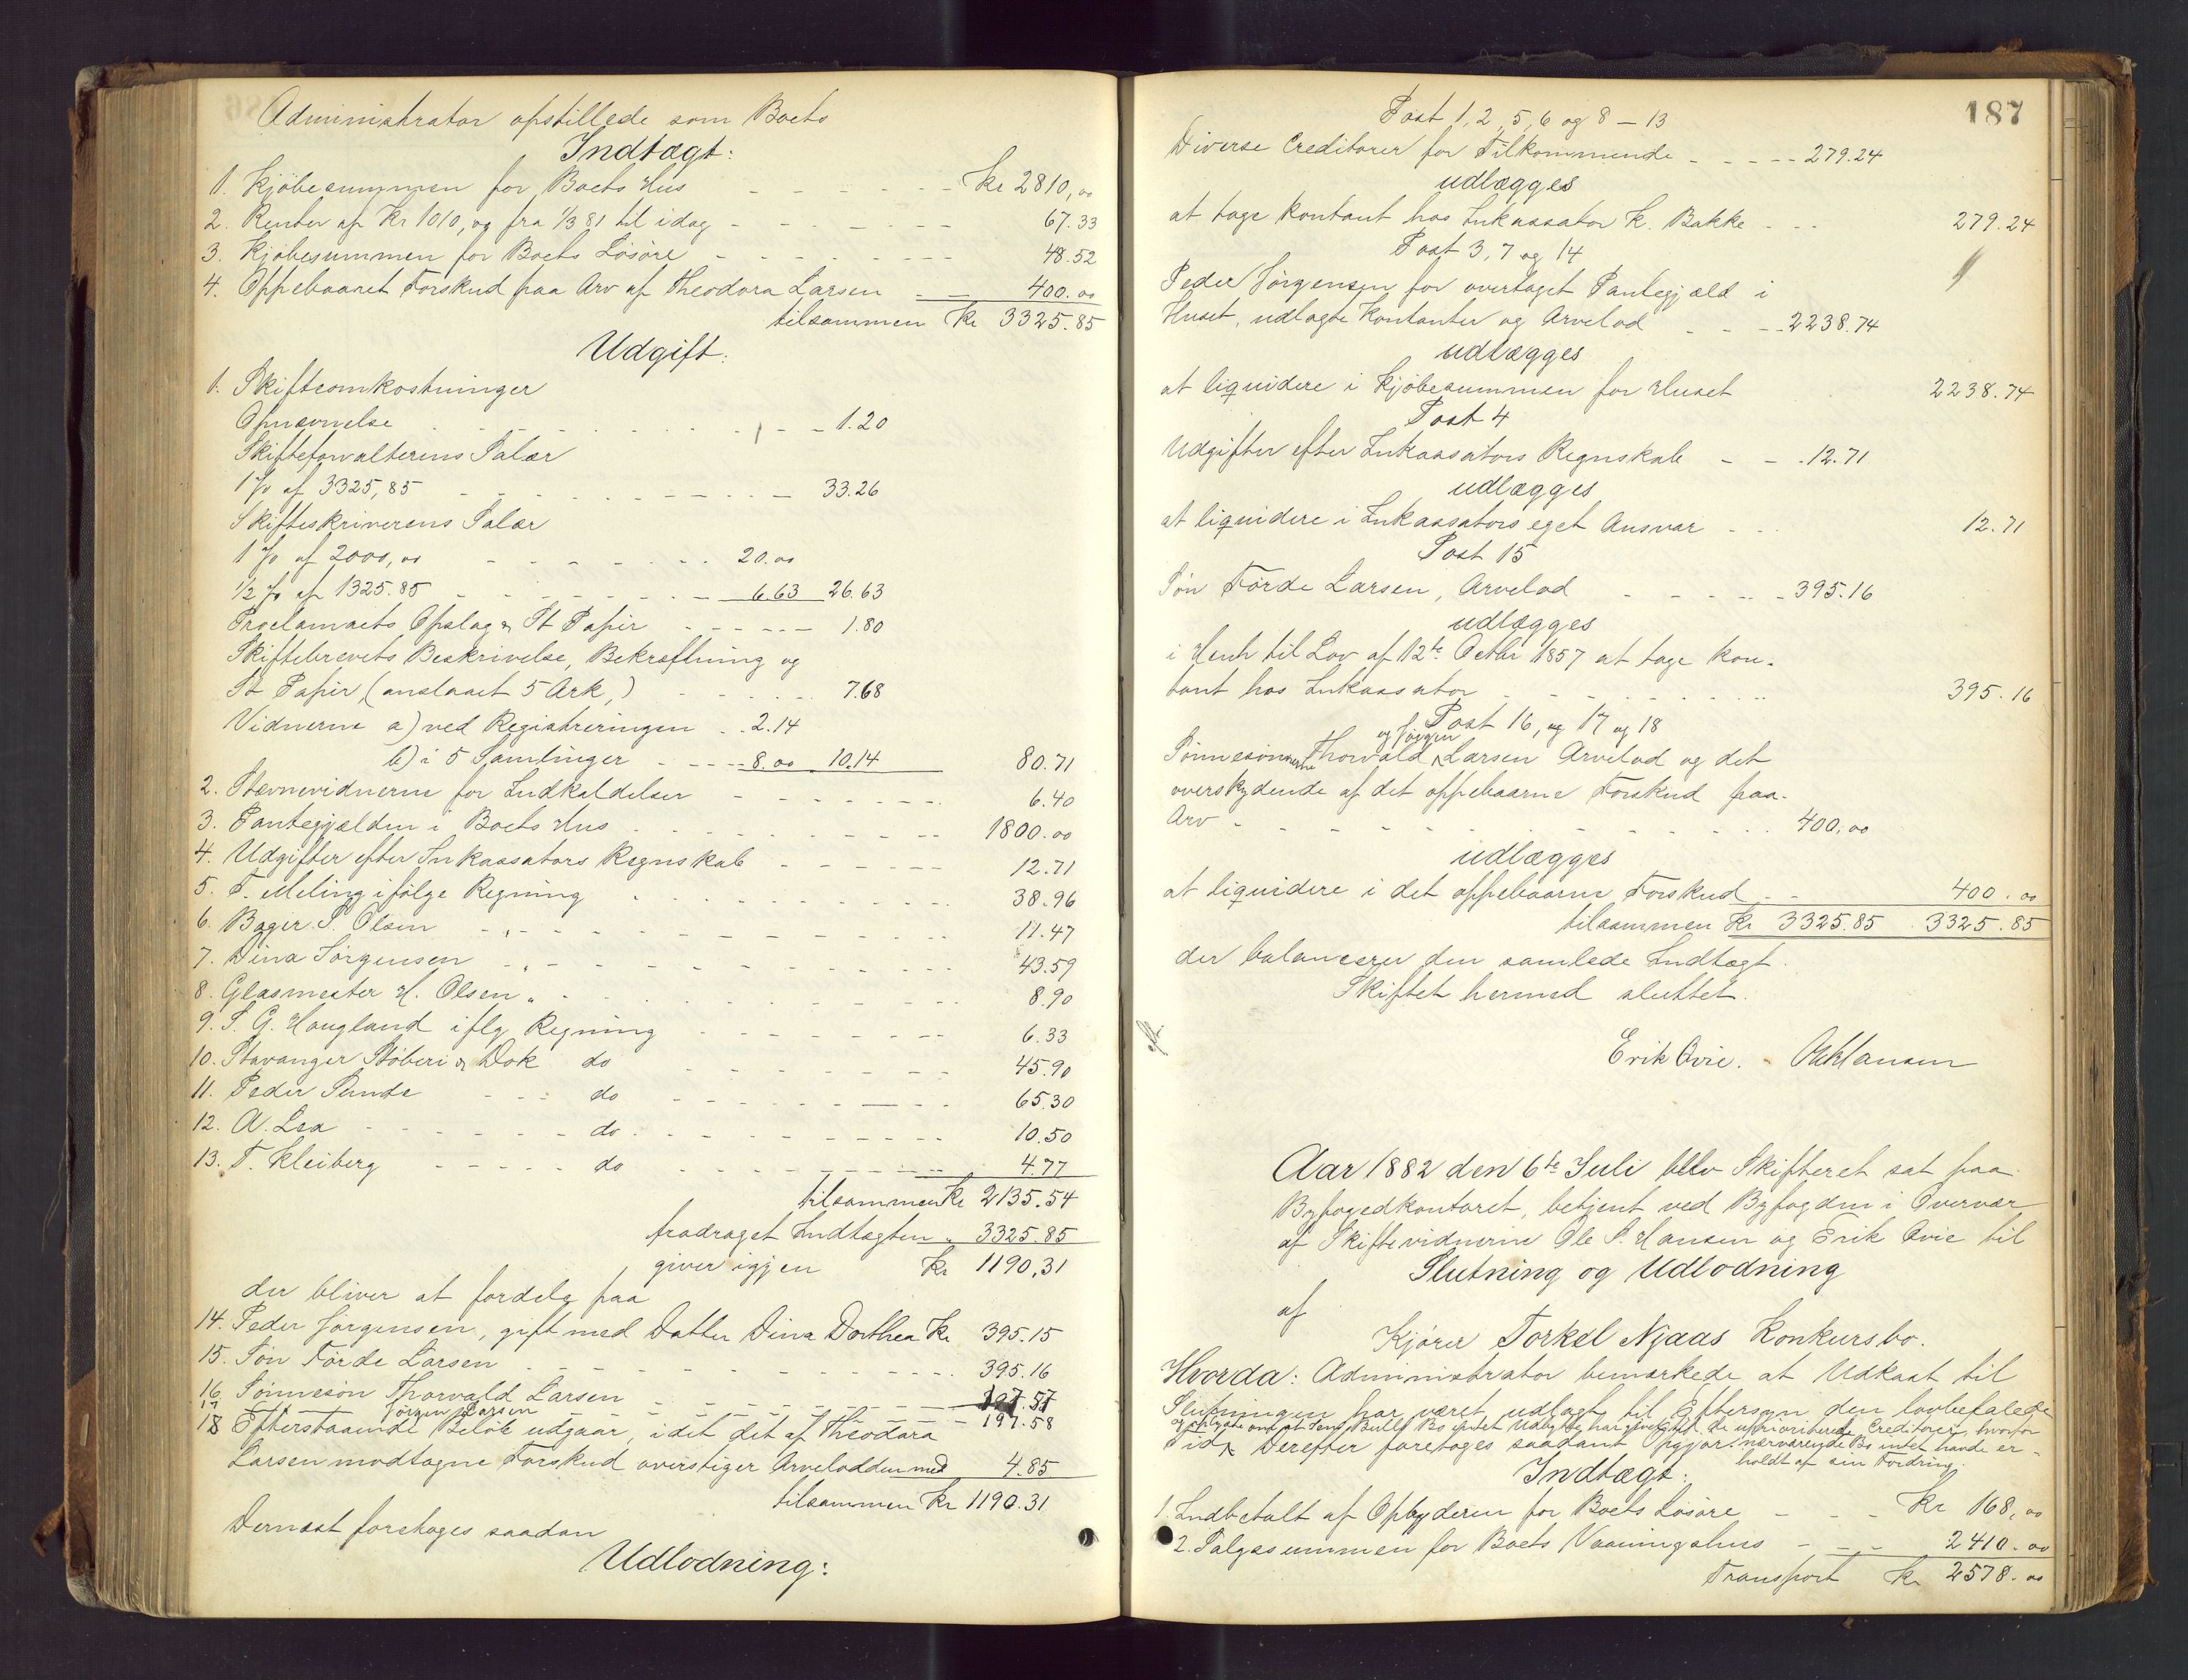 Administrator opstillede som Boets
Indtægt:
1. Kjøbesummen for Boets Hus - - - - - - Kr 2810,00
2. Renter af Kr 1010, og fra 1/3 81 til idag - - - - - 67.33
3. Kjøbesummen for Boets Løsøre - - - - - - 48.52
4. Oppebaaret Forskud paa Arv af Theodora Larsen - - 400.00
tilsammen Kr 3325.85
Udgift:
1. Skifteomkostninger
Opnævnelse - - - 1.20
Skifteforvalterens Salær
1 % af 3325,85 - - - 33.26
Skifteskriverens Salær
1 % af 2000,00 - - - 20.00
1/2 % af 1325.85 - - - 6.63 26.63
Proclamaets Opslag & St Papir - - - 1.80
Skiftebrevets Beskrivelse, Bekræftning og
St Papir, (anslaaet 5 Ark,) - - - 7.68
Vidnerne a) ved Registreringen - . 2.14
b) i 5 Samlinger - - - 8.00 10.14 80.71
2. Stævnevidnerne for Indkaldelser - - - 6.40
3. Pantegjælden i Boets Hus - - - 1800.00
4. Udgifter efter Inkassators Regnskab - - - 12.71
5. T. Meling ifølge Regning - - - 38.96
6. Bager S. Olsen - „ - - - 11.47
7. Dina Jørgensen - „ - - - 43.59
8. Glasmester H. Olsen „ - - - 8.90
9. S. G. Haugland iflg Regning - - - 6.33
10. Stavanger Støberi & Dok do - - - 45.90
11. Peder Sunde - - - do - - - 65.30
12. A. Lea - - - do - - - 10.50
13. T. Kleiberg - - - do - - - 4.77
tilsammen Kr 2135.54
fradraget Indtægten „ 3325.85
giver igjen Kr 1190.31
der bliver at fordele paa
14. Peder Jørgensen, gift med Datter Dina Dorthea Kr 395.15
15. Søn Førde Larsen - - - 395.16
16. Sønnesøn Thorvald Larsen - - - 197.57
17 Jørgen Larsen - - - 197.58
18 Efterstaaende Beløb udgaar, idet det af Theodora
Larsen modtagne Forskud overstiger Arvelodden med 4.85
tilsammen Kr 1190.31
Dernæst foretoges saadan
Udlodning:
187
Post 1, 2, 5, 6 og 8 — 13
Diverse Creditorer for Tilkommende - - - 279.24
udlægges
at tage kontant hos Inkassator K. Bakke - - - 279.24
Post 3, 7 og 14
Peder Jørgensen for overtaget Pantegjæld i
Huset, udlagte Kontanter og Arvelod - - - 2238.74
udlægges
at liquidere i Kjøbesummen for Huset 2238.74
Post 4
Udgifter efter Inkassators Regnskab - - - 12.71
udlægges
at liquidere i Inkassators eget Ansvar - - 12.71
Post 15
Søn Førde Larsen, Arvelod - - - 395.16
udlægges
i Henh til Lov af 12te Octbr 1857 at tage kon-
tant hos Inkassator - - - 395.16
Post 16, og 17 og 18
Sønnesønnerne Thorvald og Jørgen Larsen Arvelod og det
overskydende af det oppebaarne Forskud paa
Arv - - - 400,00
udlægges
at liquidere i det oppebaarne Forskud - - 400.00
tilsammen Kr 3325.85 3325.85
der balancerer den samlede Indtægt.
Skiftet hermed sluttet.
Erik Qvie. Hansen
Aar 1882 den 6te Juli blev Skifteret sat paa
Byfogedkontoret, betjent ved Byfogden i Overvær
af Skiftevidnerne Ole S. Hansen og Erik Qvie til
Slutning og Udlodning
af
Kjører Torkel Njaas Konkursbo.
Hvorda: Administrator bemærkede at Udkast til
Slutningen har været udlagt til Eftersyn den lovbefalede
og at Bo intet Udbytte har givet de uprioriterede Creditorer, hvorfor
Tid Derefter foretoges saadant Opgjør: nærværende Bo intet havde er-
holdt af sin Fordring.
Indtægt:
1. Indbetalt af Opbyderen for Boets Løsøre - - - Kr 168,00
2. Salgssummen for Boets Vaaningshus - - - 2410.00
Transport Kr 2578.00